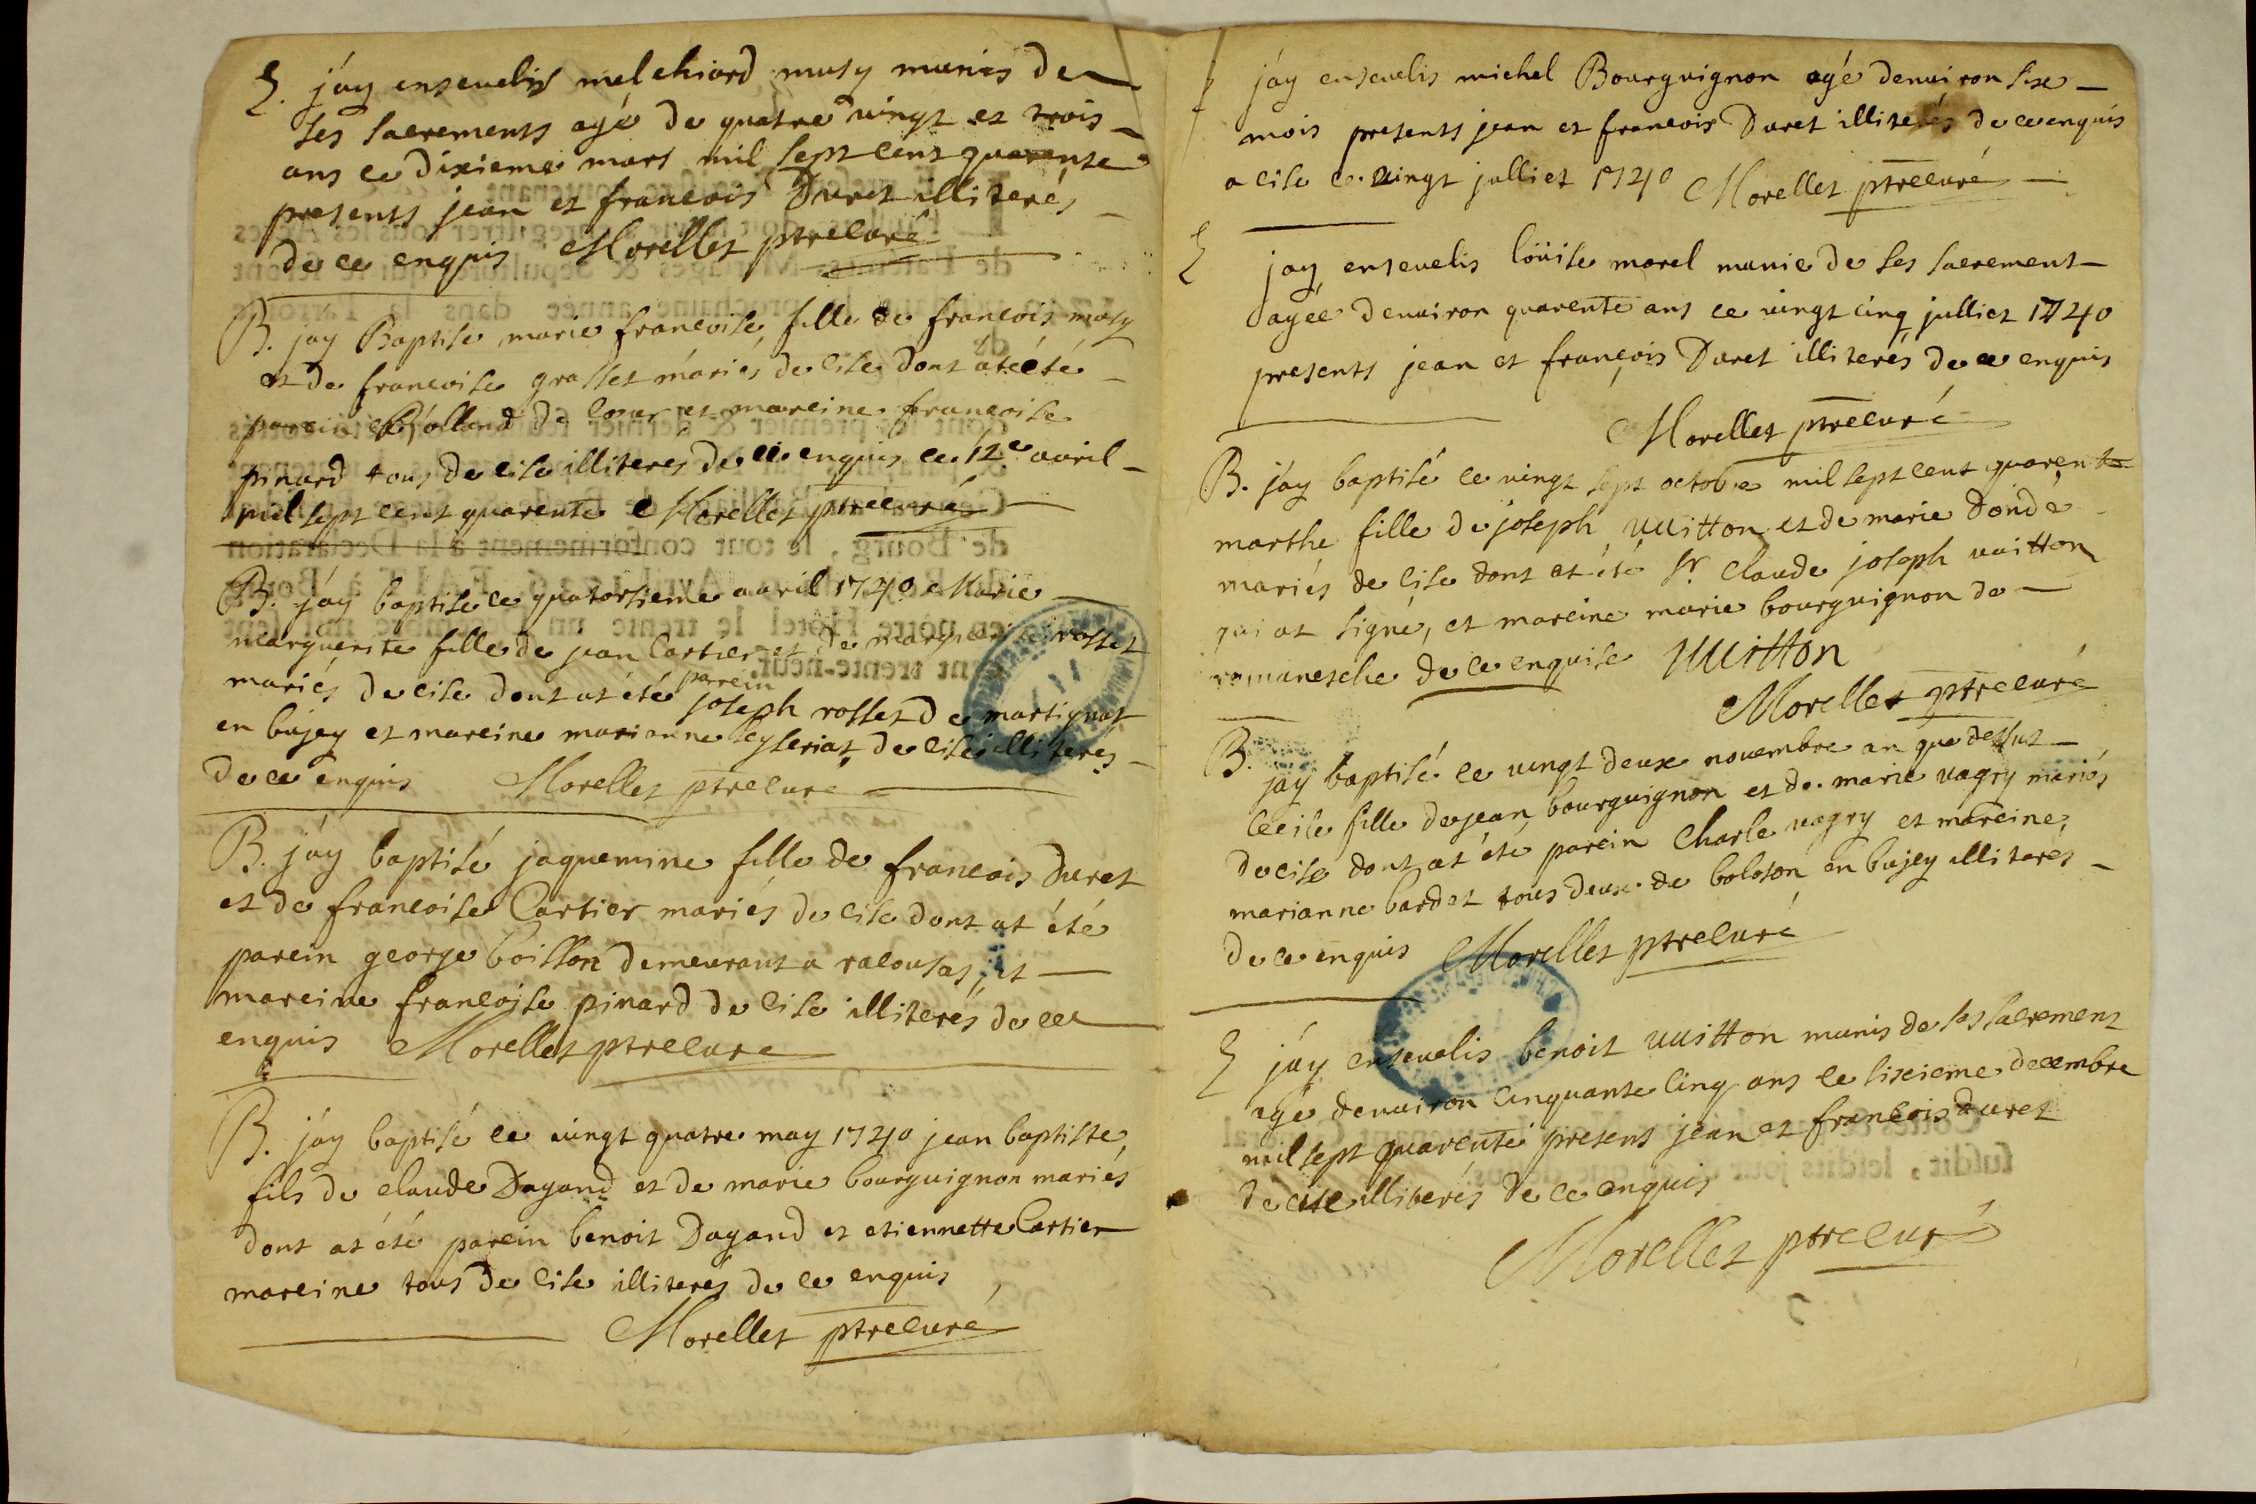 E. jáy ensevelis melchiord musy munis de
ses sacrements agé de quatre vingt et trois
ans ce dixieme mars mil sept cent quarente
presents jean et francois Duret illiterés
de ce enquis Morellet ptrecuré
B. jáy Baptise marie francoise fille de francois musy
et de francoise grasset máriés de cise dont at eté
parein Rolland de et mareine francoise
pinard tous de cise illiteres de ce enquis ce 12e avril
mil sept cent quarente Morellet ptrecuré
B. jáy baptise ce quatorsieme avril 1740 Marie
marguerite fille de jean Cartier et de marguerite rosset
mariés de cise dont at été parein joseph rosset de martignat
en bujey et mareine marianne leyseriat de cise illiterés
de ce enquis Morellet ptrecure
B. jáy baptisé jaquemine fille de francois Duret
et de francoise Cartier mariés de cise dont at été
parein george boisson demeurant a racousas, et
mareine francoise pinard de cise illiterés de ce
enquis Morellet ptrecure
B. jáy baptisé ce vingt quatre may 1740 jean baptiste,
fils de claude Dagand et de marie bourguignon mariés
dont at été parein benoit Dagand et etiennette Cartier
mareine tous de cise illiterés de ce enquis
Morellet ptrecuré
E jáy ensevelis michel Bourguignon agé denviron six
mois presents jean et francois Duret illiterés de ce enquis
a cise ce vingt julliet 1740 Morellet ptrecuré
E jay ensevelis loüise morel munie de ses sacrement
agée denviron quarente ans ce vingt cinq julliet 1740
presents jean et françois Duret illiterés de ce enquis
Morellet ptrecuré
B. jáy baptisé ce vingt sept octobre mil sept cent quarente
marthe fille de joseph vuitton et de marie dondé
mariés de cise dont at été Sr. Claude joseph vuitton
qui at signé, et mareine marie bourguignon de
romanesche de ce enquise vuitton
Morellet ptrecuré
B. jay baptisé ce vingt deux novembre an que dessus
Cecile fille de jean bourguignon et de marie vagry mariés
de cise dont at été parein Charle vagry et mareine,
marianne bardet tous deux de boloson en bujey illiteres
de ce enquis Morellet ptrecuré
E jáy ensevelis benoit vuitton munis de ses sacrement
agé denviron cinquante cinq ans ce sixieme decembre
mil sept quarente presens jean et francois duret
de cise illiterés de ce enquis
Morellet ptrecuré